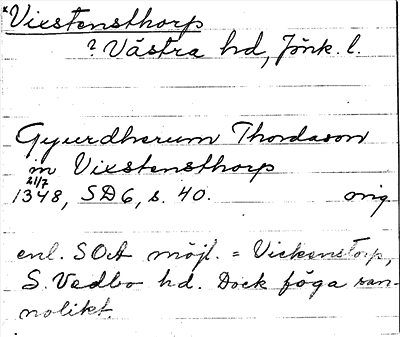 *Vixstensthorp
? Västra hd, Jönk. l.
Gyurdherum Thordason
in Vixstensthorp
21/7
1348, SD 6, s. 40. orig.
enl. SOÄ möjl. = Vickenstorp,
S. Vedbo hd. Dock föga san-
nolikt.